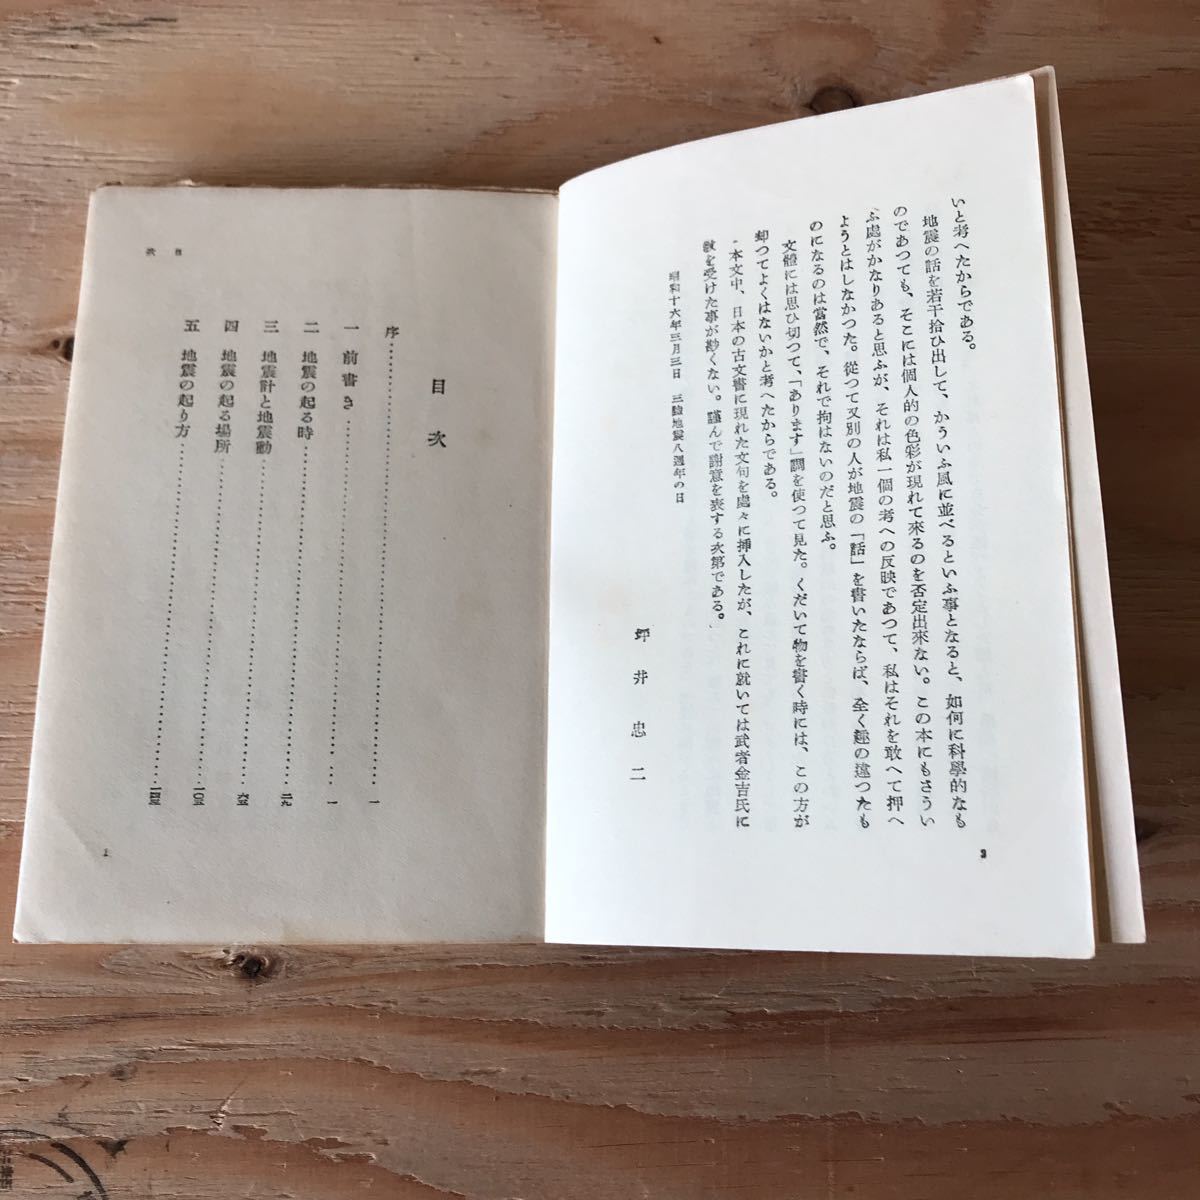 いと考へたからである。
地震の話を若干拾ひ出して、かういふ風に並べるといふ事となると、如何に科學的なも
のであつても、そこには個人的の色彩が現れて來るのを否定出來ない。この本にもさうい
ふ處がかなりあると思ふが、それは私一個の考への反映であつて、私はそれを敢へて押へ
ようとはしなかつた。從つて又別の人が地震の「話」を書いたならば、全く趣の違つたも
のになるのは當然で、それで拘はないのだと思ふ。
文體には思ひ切つて、「あります」調を使つて見た。くだいて物を書く時には、この方が
却つてよくはないかと考へたからである。
本文中、日本の古文書に現れた文句を處々に挿入したが、これに就いては武者金吉氏に
教を受けた事が尠くない。謹んで謝意を表する次第である。
昭和十六年三月三日 三陸地震八週年の日
坪井忠二
3
目次
序……一
一 前書き……一
二 地震の起る時……二九
三 地震計と地震動……六五
四 地震の起る場所……一〇三
五 地震の起り方……一四三
目次
1